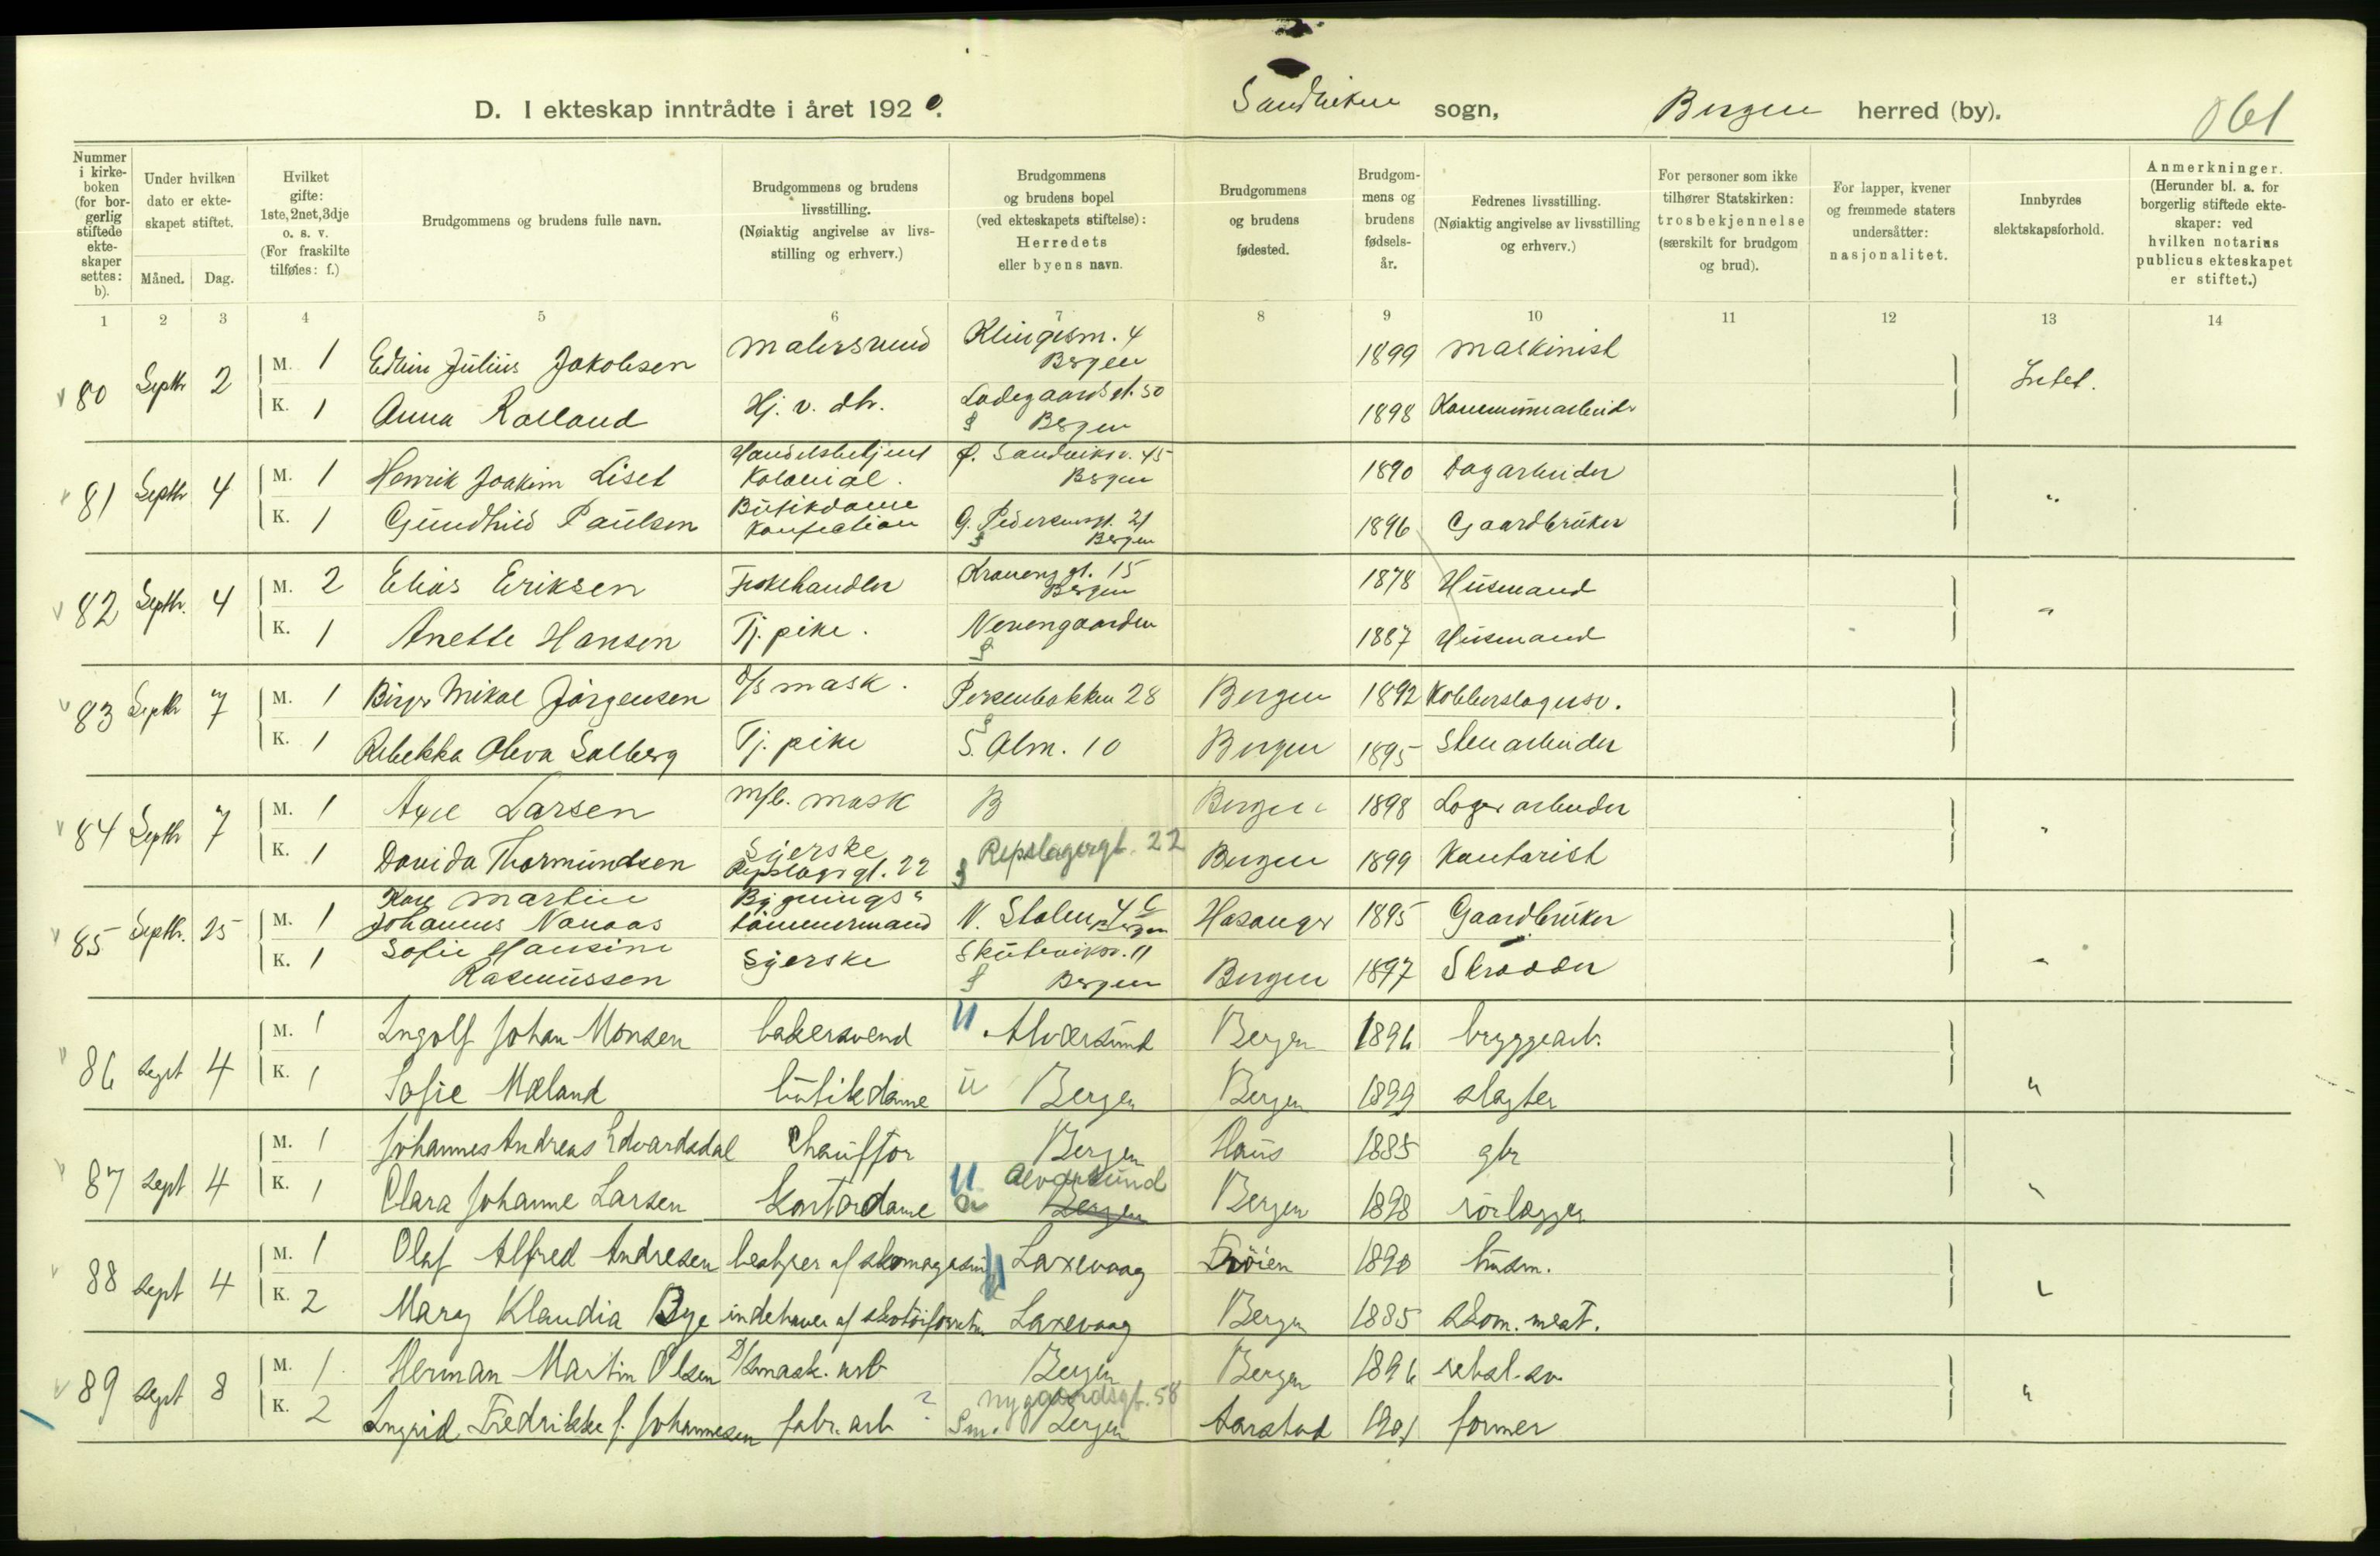 D. I ekteskap inntrådte i året 1920.
Sandviken sogn, Bergen herred (by).
061
Nummer i kirkeboken (for borgerlig stiftede ekteskaper settes: b).
Under hvilken dato er ekteskapet stiftet.
Måned. Dag.
Hvilket gifte: 1ste, 2net, 3dje o. s. v. (For fraskilte tilføies: f.)
Brudgommens og brudens fulle navn.
Brudgommens og brudens livsstilling. (Nøiaktig angivelse av livsstilling og erhverv.)
Brudgommens og brudens bopel (ved ekteskapets stiftelse): Herredets eller byens navn.
Brudgommens og brudens fødested.
Brudgommens og brudens fødselsår.
Fedrenes livsstilling. (Nøiaktig angivelse av livsstilling og erhverv.)
For personer som ikke tilhører Statskirken: trosbekjennelse (særskilt for brudgom og brud).
For lapper, kvener og fremmede staters undersåtter: nasjonalitet.
Innbyrdes slektskapsforhold.
Anmerkninger. (Herunder bl. a. for borgerlig stiftede ekteskaper: ved hvilken notarius publicus ekteskapet er stiftet.)
1 2 3 4 5 6 7 8 9 10 11 12 13 14
80 Septbr 2 M. 1 Edvin Julius Jakobsen malersvend Klingesm. 4 Bergen 1899 maskinist Intet.
K. 1 Anna Kolland Hj. v. dtr. Ladegaardsgt. 50 Bergen 1898 Kommunearbeider
81 Septbr 4 M. 1 Henrik Joakim Liset Handelsbetjent Kolonial. Ø. Sandviksv. 45 Bergen 1890 Dagarbeider "
K. 1 Gundhild Paulsen Butikdame Konfection G. Pedersensgt. 21 Bergen 1896 Gaardbruker
82 Septbr. 4 M. 2 Elias Eriksen Fiskehandler Kroneng gt. 15 Bergen 1878 Husmand "
K. 1 Anette Hansen Tj. pike. Nevengaarden 1887 Husmand
83 Septbr 7 M. 1 Birger Mikal Jørgensen D/s mask. Persenbakken 28 Bergen 1892 Kobberslagersv.
K. 1 Rebekka Oleva Solberg Tj. pike S. Alm. 10 Bergen 1895 Stenarbeider
84 Septbr 7 M. 1 Axel Larsen M/b. mask B Bergen 1898 Lagerarbeider "
K. 1 Davida Thormundsen Syerske Repslagergt. 22 Repslagergt. 22 Bergen 1899 Kontorist
85 Septbr. 25 M. 1 Karl Martin Johannes Nanaas Bygnings tømmermand N. Stølen 4 c Bergen Hosanger 1895 Gaardbruker
K. 1 Sofie Hansine Rasmussen Syerske Skuteviksv. 11 Bergen Bergen 1897 Skrædder "
86 Sept 4 M. 1 Ingolf Johan Monsen bakersvend U. Alversund Bergen 1896 bryggearb.
K. 1 Sofie Mæland butikdame U Bergen Bergen 1899 slagter "
87 Sept 4 M. 1 Johannes Andreas Edvardsdal Chauffør Bergen Haus 1885 gbr
K. 1 Clara Johanne Larsen Kontordame U Alversund Bergen Bergen 1898 rørlægger "
88 Sept 4 M. 1 Olaf Alfred Andresen bestyrer af skomagasin U Laxevaag Brøien 1890 husm.
K. 2 Mary Klaudia Bye indehaver af skotøiforretn. Laxevaag Bergen 1885 skom. mest. "
89 Sept 8 M. 1 Herman Martin Olsen D/s mask. arb Bergen Bergen 1896 rebsl. sv.
K. 2 Ingrid Fredrikke f. Johannesen fabr. arb ? Nygaardsgt. 58 Sm. Bergen Aarstad 1901 former "